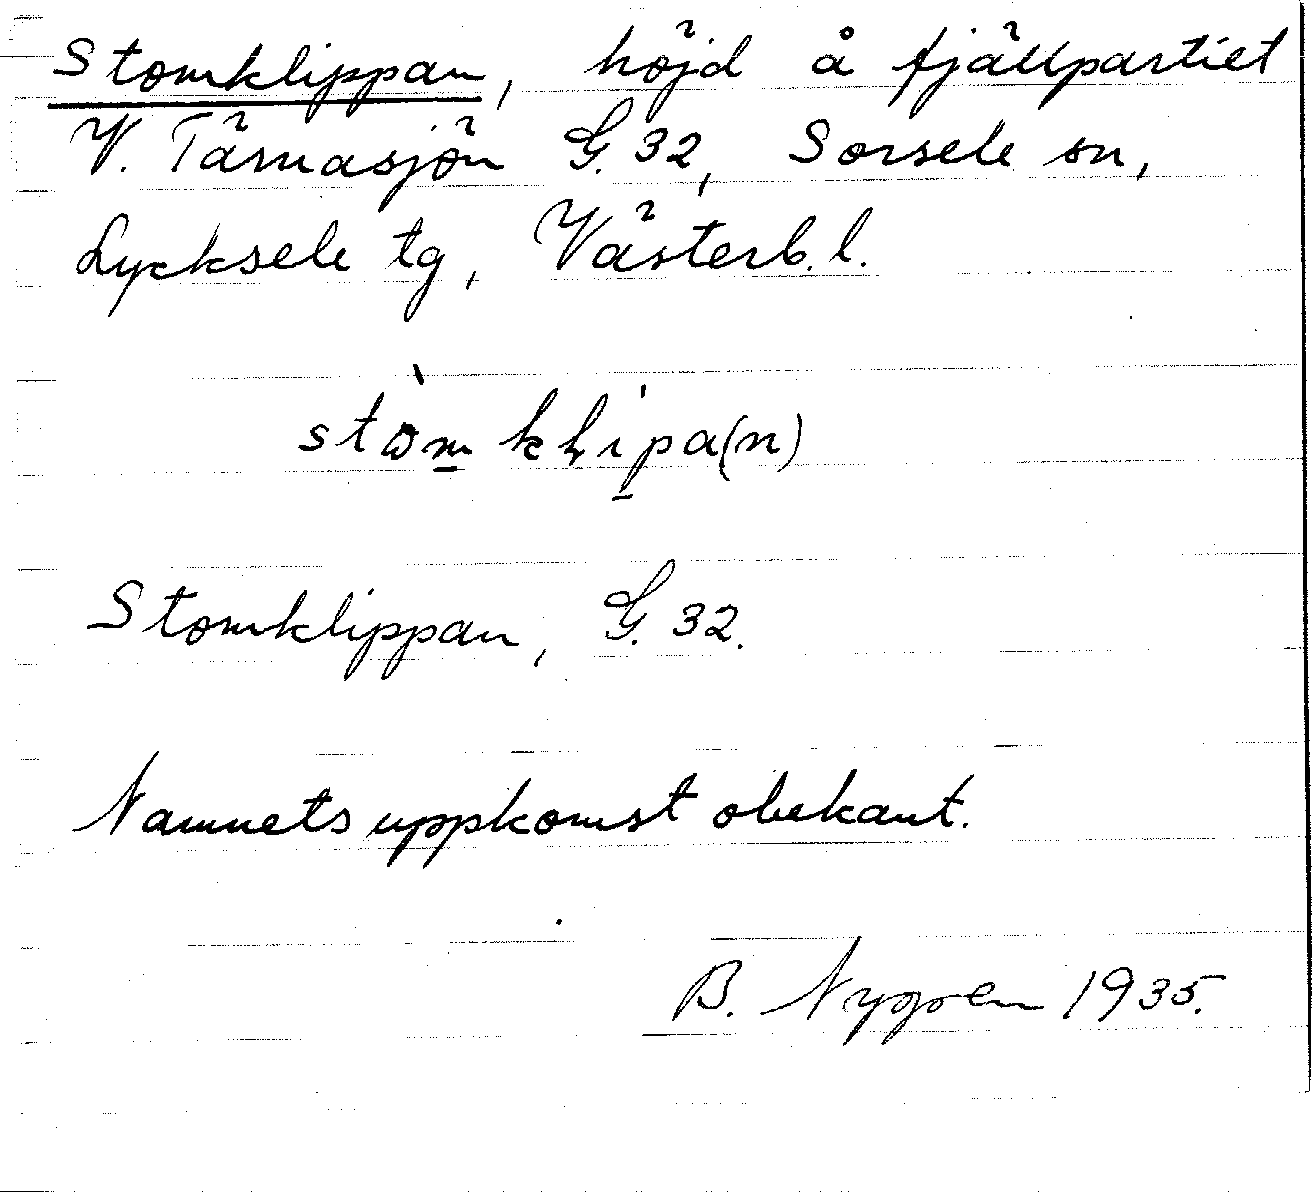 Stomklippan, höjd å fjällpartiet
V. Tärnasjön G. 32, Sorsele sn,
Lycksele tg, Västerb. l.
Stomklippan, G. 32.
Namnets uppkomst obekant.
B. Nygren 1935.